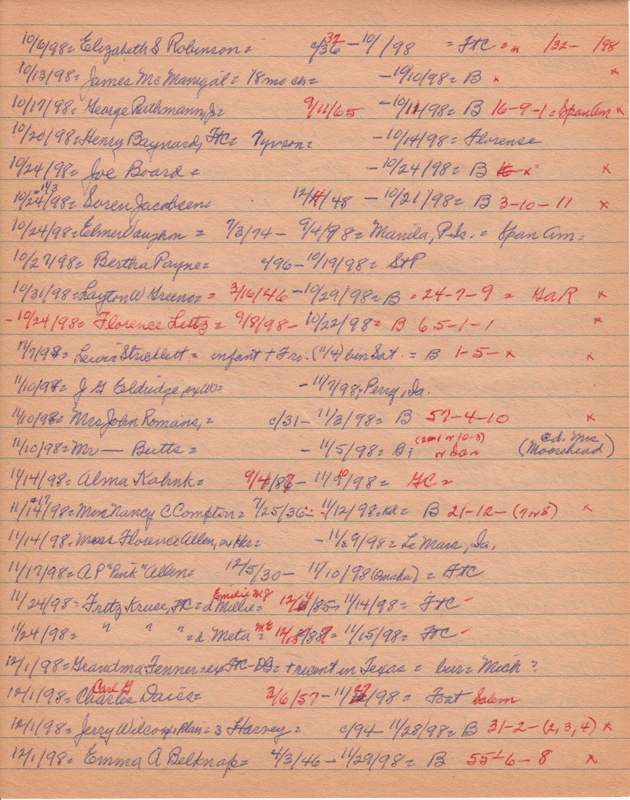 10/6/98 = Elizabeth S Robinson = c/36 32 - 10/ /98 = FtC = " /32 - /98
10/13/98 = James McManigal = 18 mo ch = - 10/10/98 = B x x
10/17/98 = George Ruthmann, Jr = 9/11/65 - 10/11/98 = B 16-9-1 = Span Am x
10/20/98 = Henry Baynard, FtC = Tyvson = - 10/14/98 = Florence
10/24/98 = Joe Board = - 10/24/98 = B x x
10/24/98 = 11/3 Soren Jacobsen = 12/4/48 - 10/21/98 = B 3-10-11 x
10/24/98 = Elmer Vaughn = 7/3/74 - 9/4/98 = Manila, P.Is. = Span Am =
10/27/98 = Bertha Payne = c/96 - 10/19/98 = StP
10/31/98 = Layton W Greene = 3/16/46 - 10/29/98 = B = 24-7-9 = GaR x
- 10/24/98 = Florence Littz = 9/8/98 - 10/22/98 = B 65-1-1 x
11/7/98 = Lewis Stricklett = infant + Fri. (11/4) bur Sat. = B 1-5- x x
11/10/98 = J G Eldridge, ex WO = - 11/7/98, Perry, Ia.
11/10/98 = Mrs John Romans, = c/31 - 11/3/98 = B 57-4-10 x
11/10/98 = Mr — Butts = - 11/5/98 = B; (Moorehead)
11/14/98 = Alma Kahnk = 9/4/87 - 11/10/98 = GC =
11/14/98 = 17 Mrs Nancy C Compton = 7/25/36 - 11/12/98, B 21-12-(7 or 8) x
11/14/98, Florence Allen, = - 11/9/98 = Le Mars, Ia.
11/17/98 = A P "Pink" Allen = 12/5/30 - 11/10/98 (Omaha) = FtC
11/24/98 = Fritz Kruse, FtC = d Millie = 12/ /85 - 11/14/98 = FtC -
11/24/98 = " " " = d Meta = 12/ /87 - 11/15/98 = FtC -
12/1/98 = Grandma Fenner = ex FtC - DG = + recent in Texas = bur = Mich =
12/1/98 = Charles Carl G Daiss = 3/6/57 - 11/ /98 = Fort Salem
12/1/98 = Jerry Wilcox, Plain = s Harvey = c/94 - 11/28/98 = B 31-2-(2,3,4) x
12/1/98 = Emma A Belknap = 4/3/46 - 11/29/98 = B 55-6-8 x